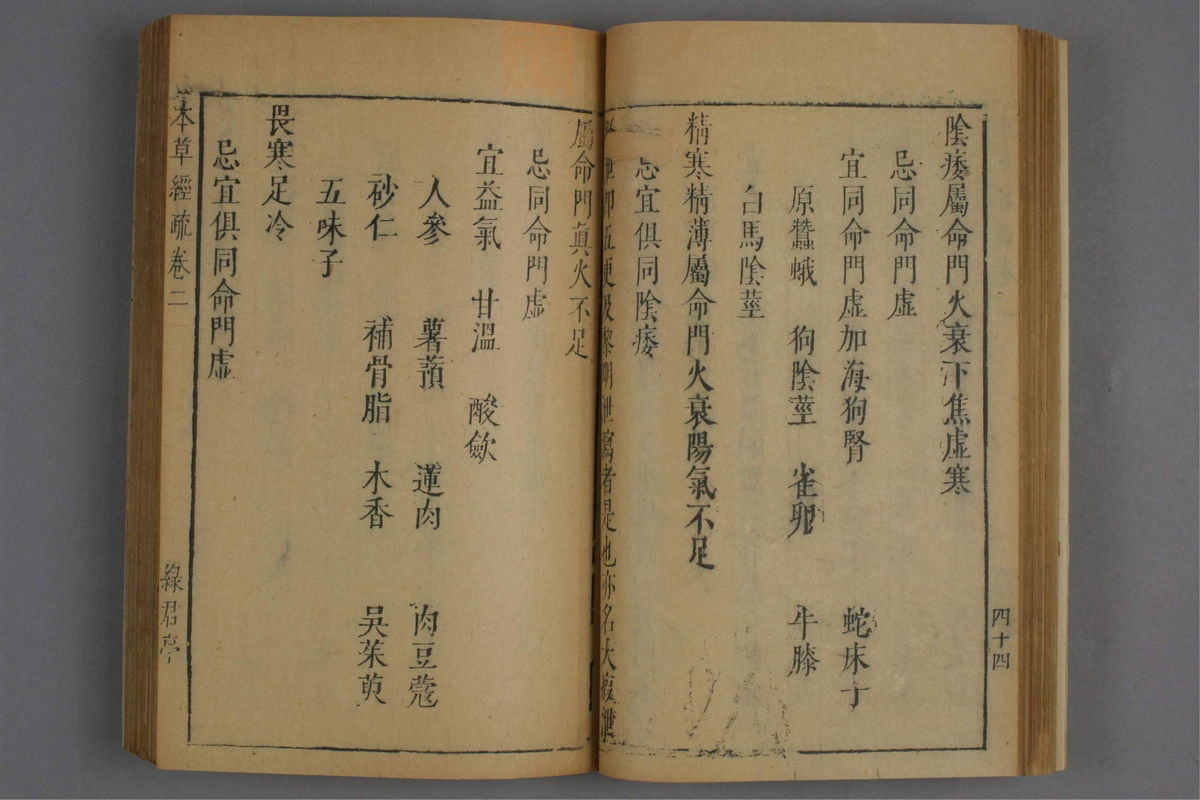 陰痿屬命門火衰下焦虛寒
忌同命門虛
宜同命門虛加海狗腎 蛇床子
原蠶蛾 狗陰莖 雀卵 牛膝
白馬陰莖
精寒精薄屬命門火衰陽氣不足
忌宜俱同陰痿
泄即五更及黎明泄瀉者是也亦名大瘕泄
屬命門眞火不足
忌同命門虛
宜益氣 甘溫 酸斂
人參 薯蕷 蓮肉 肉豆蔻
砂仁 補骨脂 木香 吳茱萸
五味子
畏寒足冷
忌宜俱同命門虛
本草經疏卷二
綠君亭
四十四